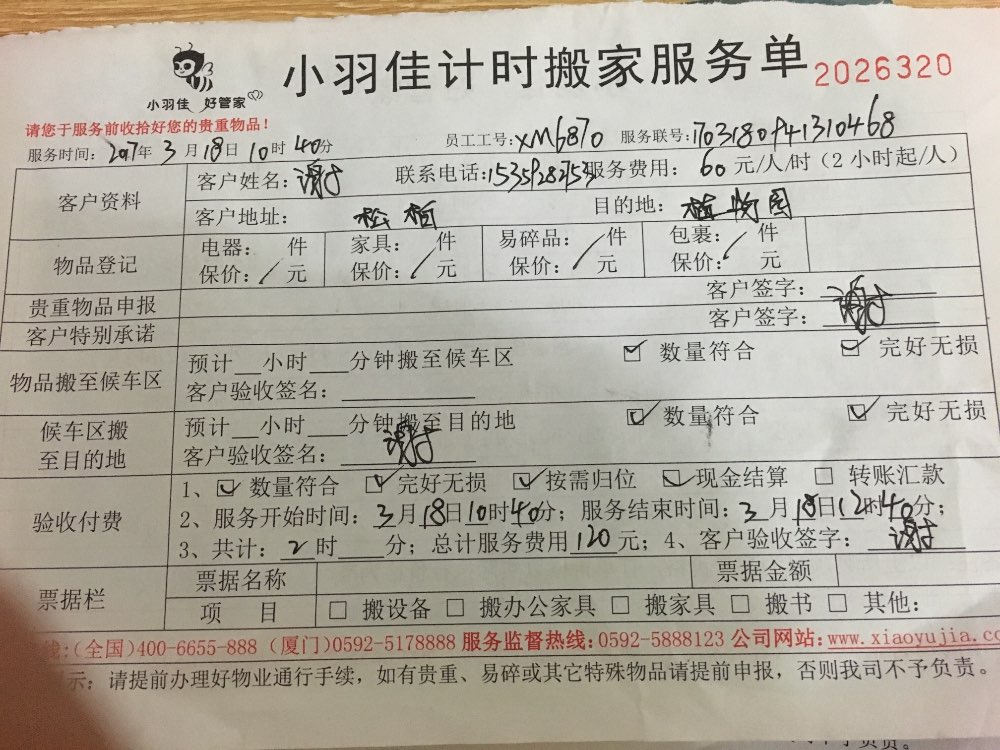 小羽佳计时搬家服务单 2026320
小羽佳 好管家
请您于服务前收拾好您的贵重物品！
服务时间：2017年3月18日10时40分 员工工号：XM6870 服务联号：
客户资料 客户姓名：谢 联系电话： 服务费用：60元/人/时（2小时起/人）
客户地址：松柏 目的地：植物园
物品登记 电器： 件 家具： 件 易碎品： 件 包裹： 件
保价： 元 保价： 元 保价： 元 保价： 元
贵重物品申报 客户签字：
客户特别承诺 客户签字：
物品搬至候车区 预计__小时___分钟搬至候车区 ☑ 数量符合 ☑ 完好无损
客户验收签名：
候车区搬至目的地 预计__小时___分钟搬至目的地 ☑ 数量符合 ☑ 完好无损
客户验收签名：
验收付费 1、☑ 数量符合 ☑ 完好无损 ☑ 按需归位 ☑ 现金结算 □ 转账汇款
2、服务开始时间：3月18日10时40分；服务结束时间：3月18日12时40分；
3、共计：2时___分；总计服务费用120元；4、客户验收签字：
票据栏 票据名称 票据金额
项 目 □ 搬设备 □ 搬办公家具 □ 搬家具 □ 搬书 □ 其他：
线:(全国)400-6655-888 (厦门)0592-5178888 服务监督热线:0592-5888123 公司网站:www.xiaoyujia.co
示：请提前办理好物业通行手续，如有贵重、易碎或其它特殊物品请提前申报，否则我司不予负责。